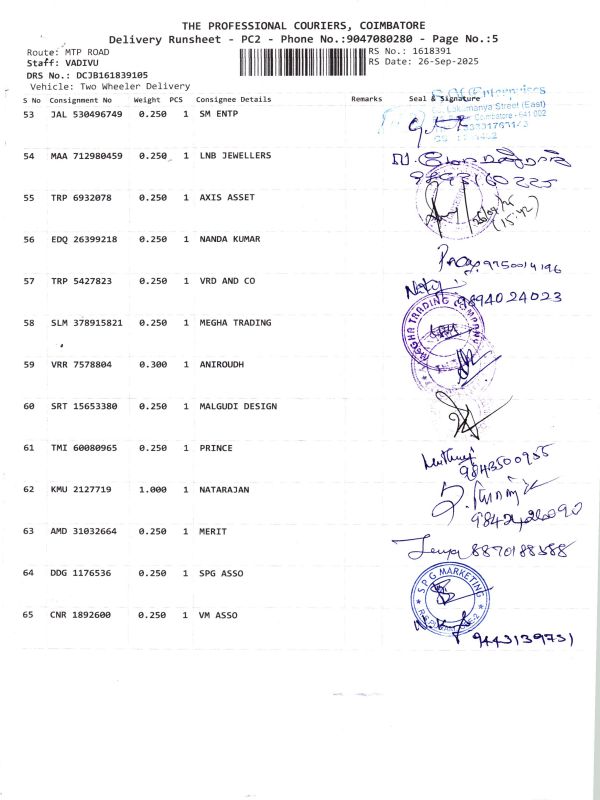 THE PROFESSIONAL COURIERS, COIMBATORE
Delivery Runsheet - PC2 - Phone No.:9047080280 - Page No.:5
Route: MTP ROAD
Staff: VADIVU
RS No.: 1618391
RS Date: 26-Sep-2025
DRS No.: DCJB161839105
Vehicle: Two Wheeler Delivery
S No Consignment No Weight PCS Consignee Details Remarks Seal & Signature
53 JAL 530496749 0.250 1 SM ENTP
Enterprises
Street (East)
Coimbatore - 641 002
54 MAA 712980459 0.250 1 LNB JEWELLERS
55 TRP 6932078 0.250 1 AXIS ASSET
(15:42)
56 EDQ 26399218 0.250 1 NANDA KUMAR
9750014196
57 TRP 5427823 0.250 1 VRD AND CO
9894024023
58 SLM 378915821 0.250 1 MEGHA TRADING
MEGHA TRADING COMPANY
59 VRR 7578804 0.300 1 ANIROUDH
60 SRT 15653380 0.250 1 MALGUDI DESIGN
61 TMI 60080965 0.250 1 PRINCE
9843500955
62 KMU 2127719 1.000 1 NATARAJAN
63 AMD 31032664 0.250 1 MERIT
8870188588
64 DDG 1176536 0.250 1 SPG ASSO
S P G MARKETING
65 CNR 1892600 0.250 1 VM ASSO
9443139731